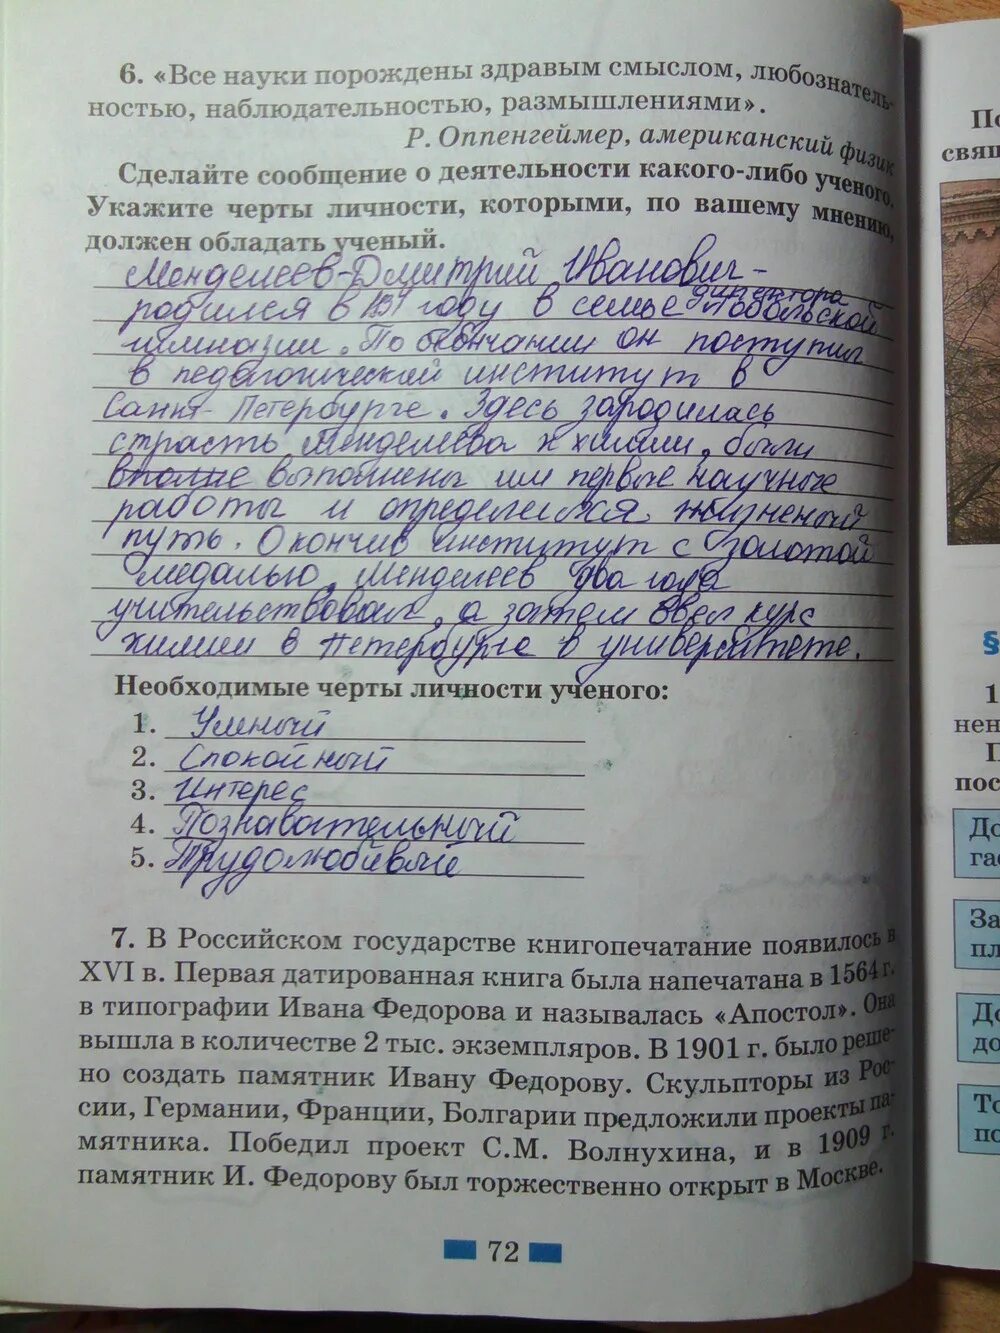 6. «Все науки порождены здравым смыслом, любознатель-
ностью, наблюдательностью, размышлениями».
Р. Оппенгеймер, американский физик
Сделайте сообщение о деятельности какого-либо ученого.
Укажите черты личности, которыми, по вашему мнению,
должен обладать ученый.
Менделеев-Дмитрий Иванович-
директора
родился в году в семье Тобольской
гимназии. По окончании он поступил
в педагогический институт в
Санкт-Петербурге. Здесь зародилась
страсть Менделеева к химии, были
вполне выполнены им первые научные
работы и определился жизненый
путь. Окончив институт с золотой
медалью, Менделеев два года
учительствовал, а затем ввел курс
химии в Петербурге в университете.
Необходимые черты личности ученого:
1. Умный
2. Спокойный
3. Интерес
4. Познавательный
5. Трудолюбивый
7. В Российском государстве книгопечатание появилось в
XVI в. Первая датированная книга была напечатана в 1564 г.
в типографии Ивана Федорова и называлась «Апостол». Она
вышла в количестве 2 тыс. экземпляров. В 1901 г. было реше-
но создать памятник Ивану Федорову. Скульпторы из Рос-
сии, Германии, Франции, Болгарии предложили проекты па-
мятника. Победил проект С.М. Волнухина, и в 1909 г.
памятник И. Федорову был торжественно открыт в Москве.
72
По
свящ
§
1
нен
П
пос
До
гас
За
пл
До
до
То
по